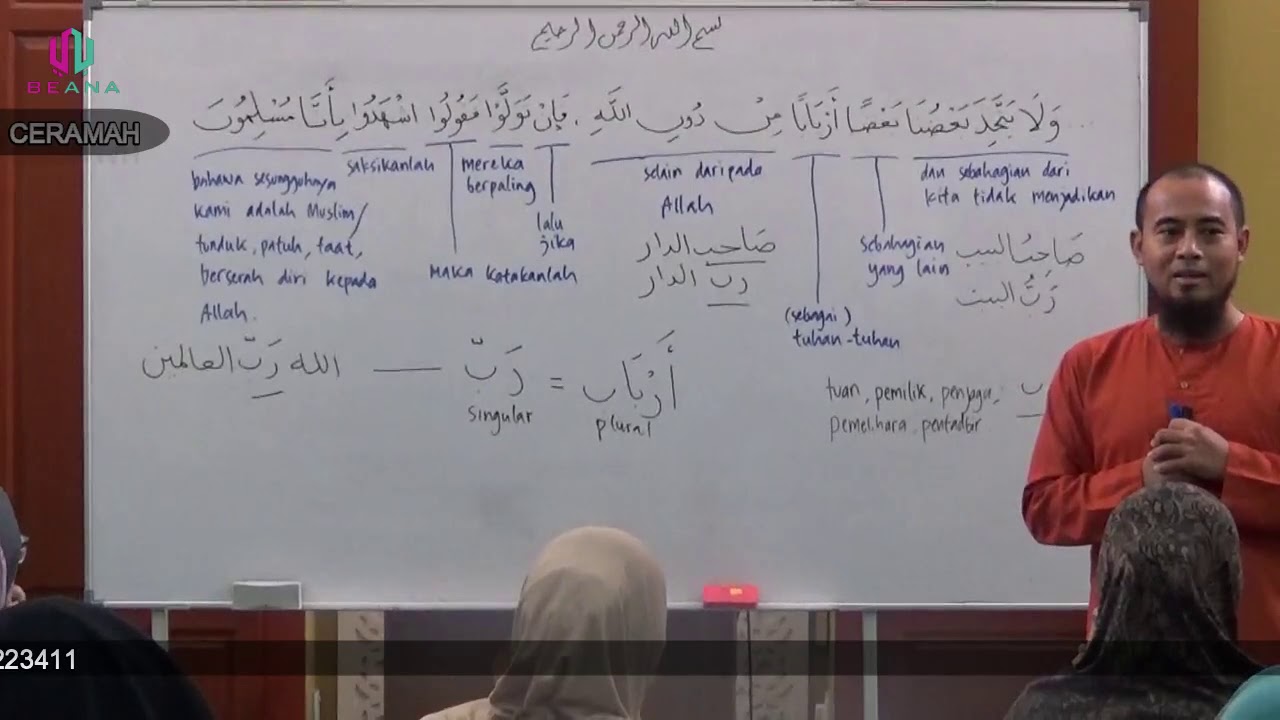 BEANA
CERAMAH
بسم الله الرحمن الرحيم
... وَلَا يَتَّخِذَ بَعْضُنَا بَعْضًا أَرْبَابًا مِنْ دُونِ اللَّهِ . فَإِنْ تَوَلَّوْا فَقُولُوا اشْهَدُوا بِأَنَّا مُسْلِمُونَ
dan sebahagian dari
kita tidak menjadikan
sebahagian
yang lain
(sebagai)
tuhan-tuhan
selain daripada
Allah
lalu
jika
mereka
berpaling
Maka katakanlah
saksikanlah
bahawa sesungguhnya
kami adalah Muslim/
tunduk, patuh, taat,
berserah diri kepada
Allah.
صَاحِبُ البيت
رَبُّ البيت
صَاحب الدار
ربّ الدار
أَرْبَاب = رَبّ — الله رَبّ العالمين
plural
singular
tuan, pemilik, penjaga,
pemelihara, pentadbir
223411